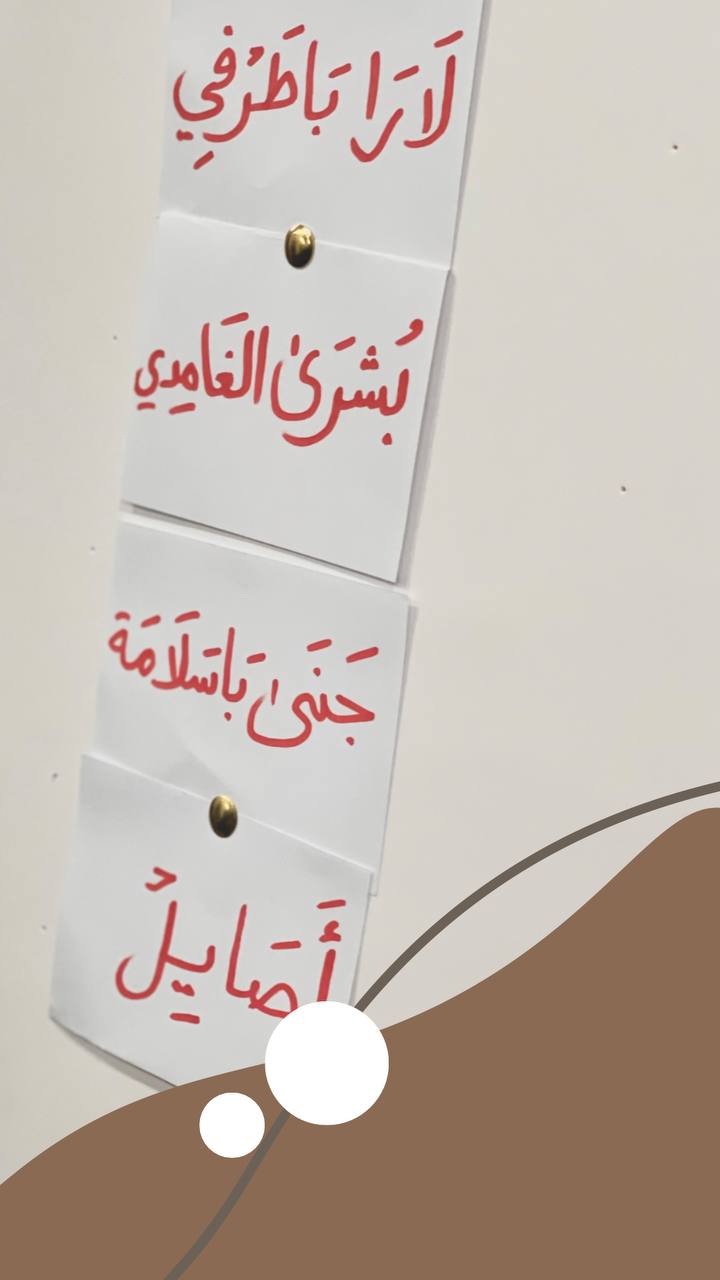 لَارَا بَاطَرْفِي
بُشْرَىٰ الغَامِدِي
جَنَىٰ بَاسَلَامَة
أَصَايِلْ